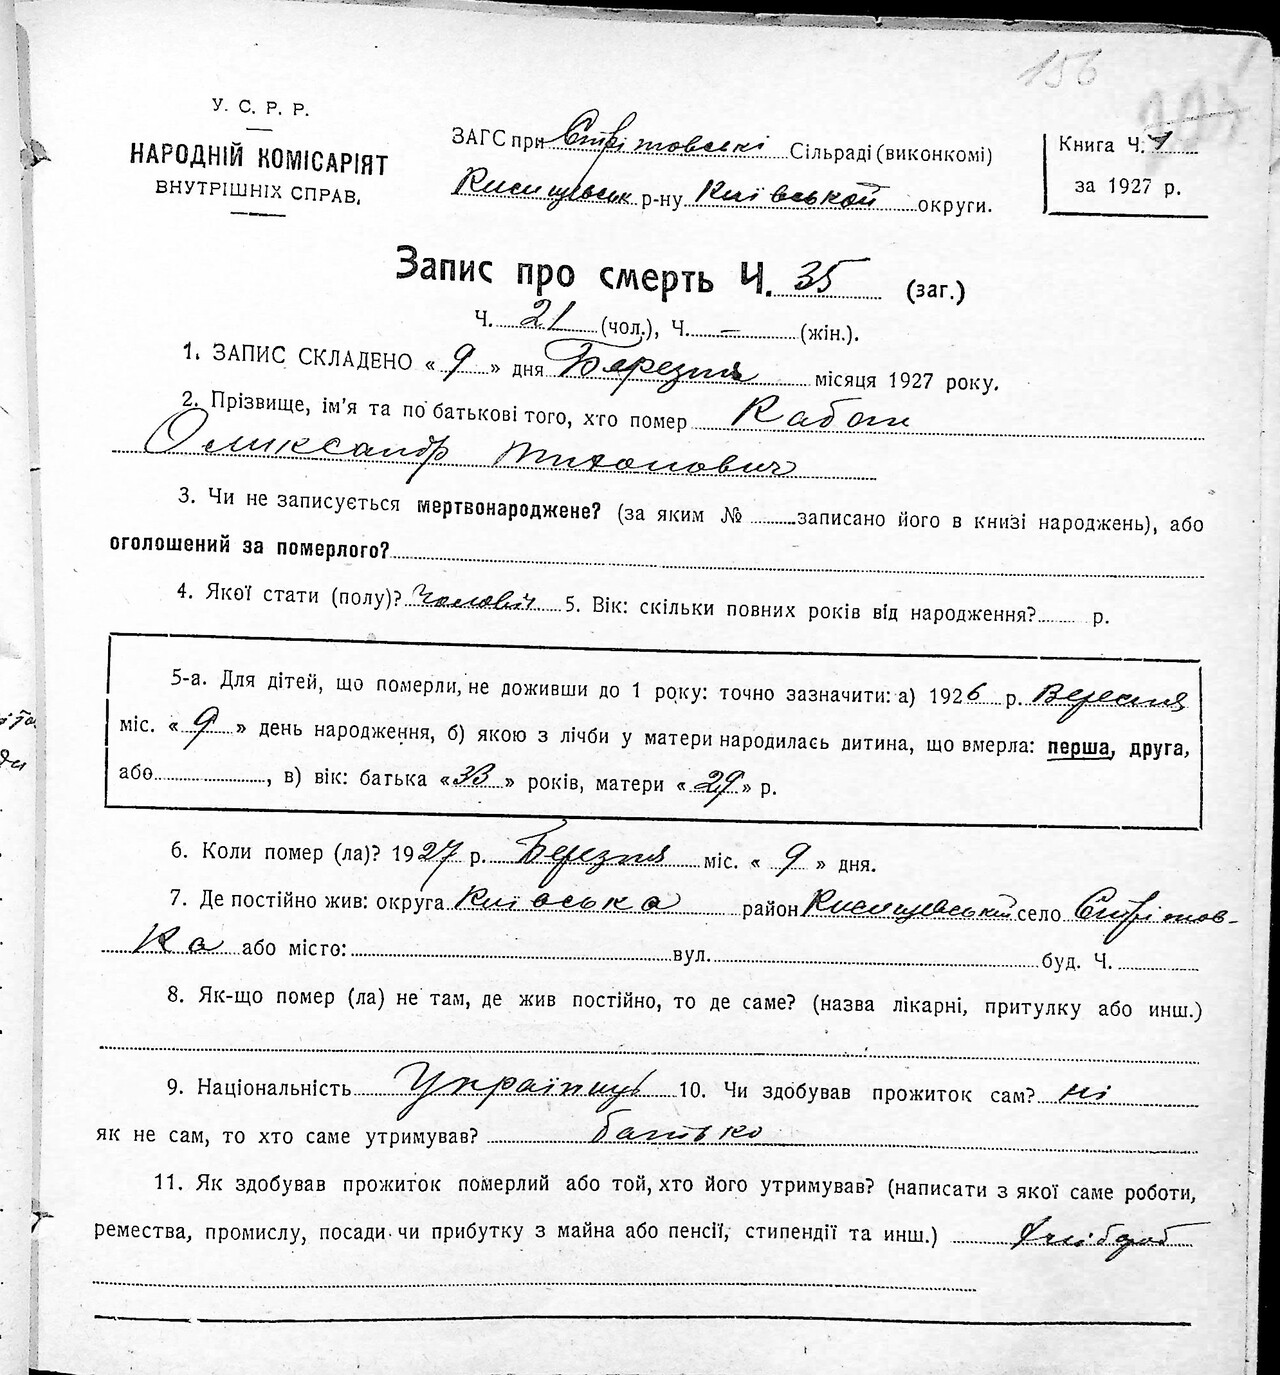 156
У. С. Р. Р.
НАРОДНІЙ КОМІСАРІЯТ
ВНУТРІШНІХ СПРАВ.
ЗАГС при Стрітовські Сільраді (виконкомі)
р-ну Київської округи.
Книга Ч. 1
за 1927 р.
Запис про смерть Ч. 35 (заг.)
Ч. 21 (чол.), Ч. – (жін.).
1. ЗАПИС СКЛАДЕНО « 9 » дня Березня місяця 1927 року.
2. Прізвище, ім'я та по батькові того, хто помер
Оликсандр Тихонович
3. Чи не записується мертвонароджене? (за яким № записано його в книзі народжень), або
оголошений за померлого?
4. Якої стати (полу)? 5. Вік: скільки повних років від народження? р.
5-а. Для дітей, що померли, не доживши до 1 року: точно зазначити: а) 1926 р. Вересня
міс. « 9 » день народження, б) якою з лічби у матери народилась дитина, що вмерла: перша, друга,
або , в) вік: батька « 33 » років, матери « 29 » р.
6. Коли помер (ла)? 1927 р. Березня міс. « 9 » дня.
7. Де постійно жив: округа Київська район село Стрітов-
ка або місто: вул. буд. Ч.
8. Як-що помер (ла) не там, де жив постійно, то де саме? (назва лікарні, притулку або инш.)
9. Національність Українць 10. Чи здобував прожиток сам? ні
як не сам, то хто саме утримував? батько
11. Як здобував прожиток померлий або той, хто його утримував? (написати з якої саме роботи,
ремества, промислу, посади чи прибутку з майна або пенсії, стипендії та инш.) хлібороб